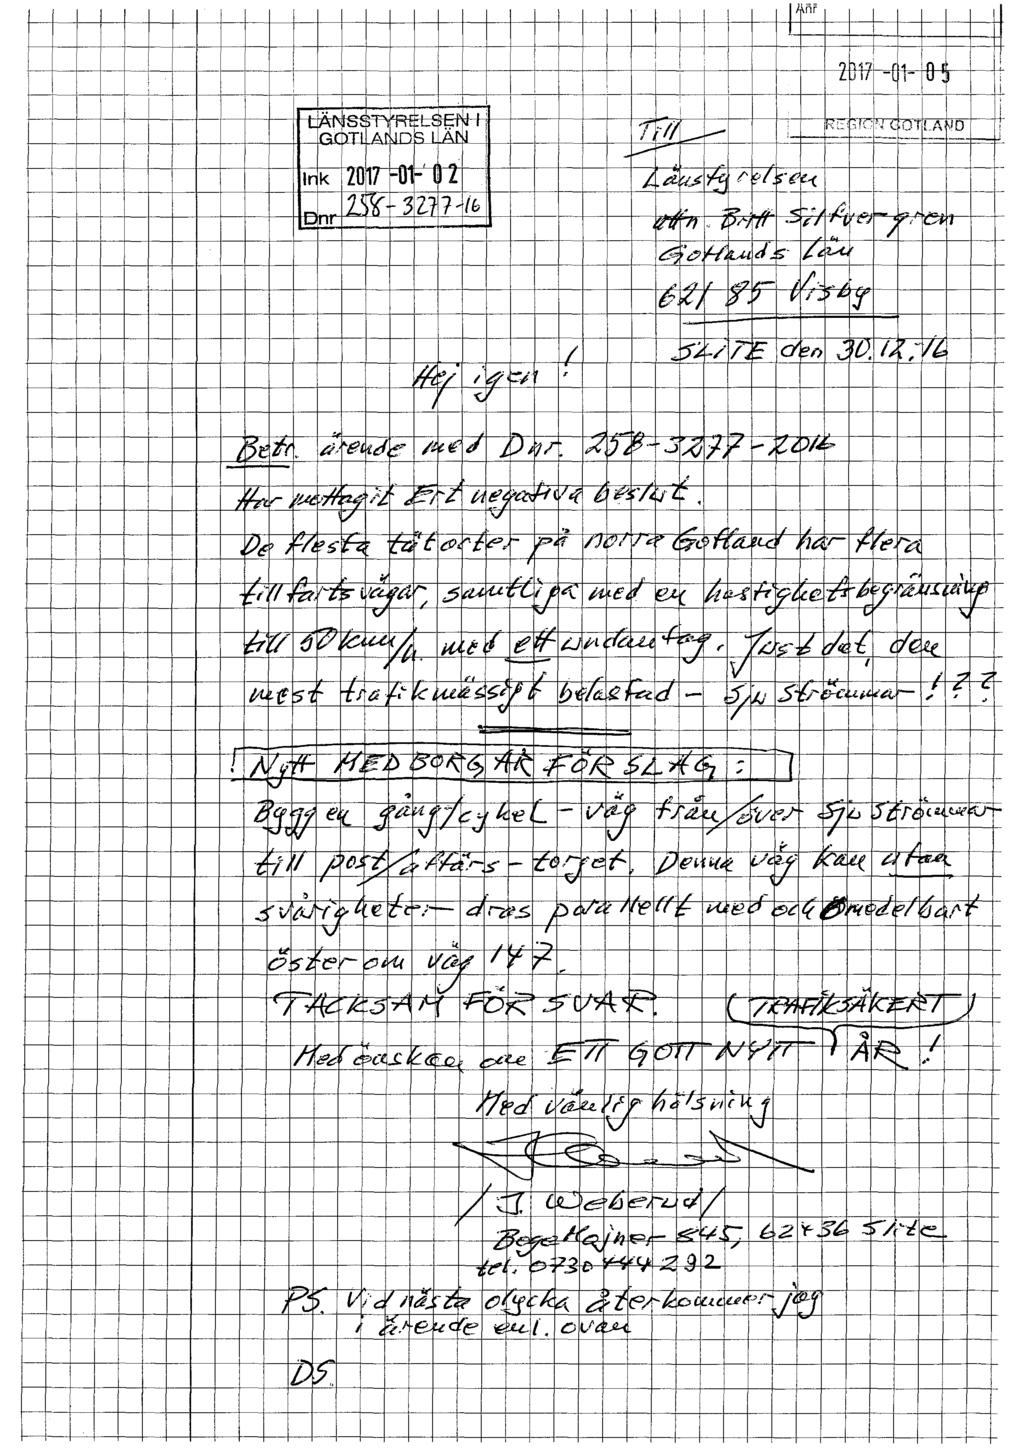 Anf
2017 -01- 05
REGION GOTLAND
LÄNSSTYRELSEN I
GOTLANDS LÄN
Ink 2017 -01- 02
Dnr 258-3277-16
Till
Länstyrelsen
attn. Britt Silfvergren
Gotlands Län
621 85 Visby
SLITE den 30.12.-16
Hej igen!
Betr. ärende med Dnr. 258-3277-2016
Har mottagit Ert negativa beslut.
De flesta tätorter på norra Gotland har flera
tillfartsvägar, samtliga med en hastighetsbegränsning
till 50 km/h. med ett undantag. Just det, den
mest trafikmässigt belastad - Sju Strömmar!??
! Nytt MEDBORGARFÖRSLAG:
Bygg en gång/cykel-väg från/över Sju Strömmar
till post/affärs-torget. Denna väg kan utan
svårigheter dras parallellt med och omedelbart
öster om väg 147.
TACKSAM FÖR SVAR.
(TRAFIKSÄKERT)
Med önskan om ETT GOTT NYTT ÅR!
Med vänlig hälsning
/J. Weberud/
Boge 545, 624 36 Slite
tel. 0730 444 292
PS. Vid nästa olycka återkommer jag
i ärende enl. ovan
DS.